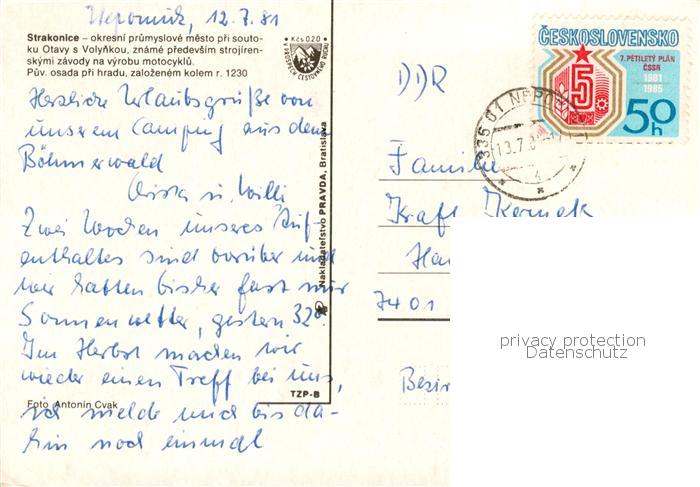 Nepomuk, 12.7.81
Strakonice – okresní průmyslové město při souto-
ku Otavy s Volyňkou, známé především strojíren-
skými závody na výrobu motocyklů.
Pův. osada při hradu, založeném kolem r. 1230
Kčs 0,20
Herzliche Urlaubsgrüße von
unserem Camping aus dem
Böhmerwald
u. Willi
Zwei Wochen unseres Auf-
enthaltes sind vorüber und
wir hatten bisher fast nur
Sonnenwetter, gestern 32°.
Im Herbst machen wir
wieder einen Treff bei uns,
ich melde mich bis da-
hin noch einmal
Foto Antonín Cvak
TZP-B
Nakladatelství PRAVDA, Bratislava
ČESKOSLOVENSKO
7. PĚTILETÝ PLÁN
ČSSR
1981
1985
5
50h
335 01 NEPO
13.7.8
4
DDR
Familie
Kraft
7401
Bezir
privacy protection
Datenschutz